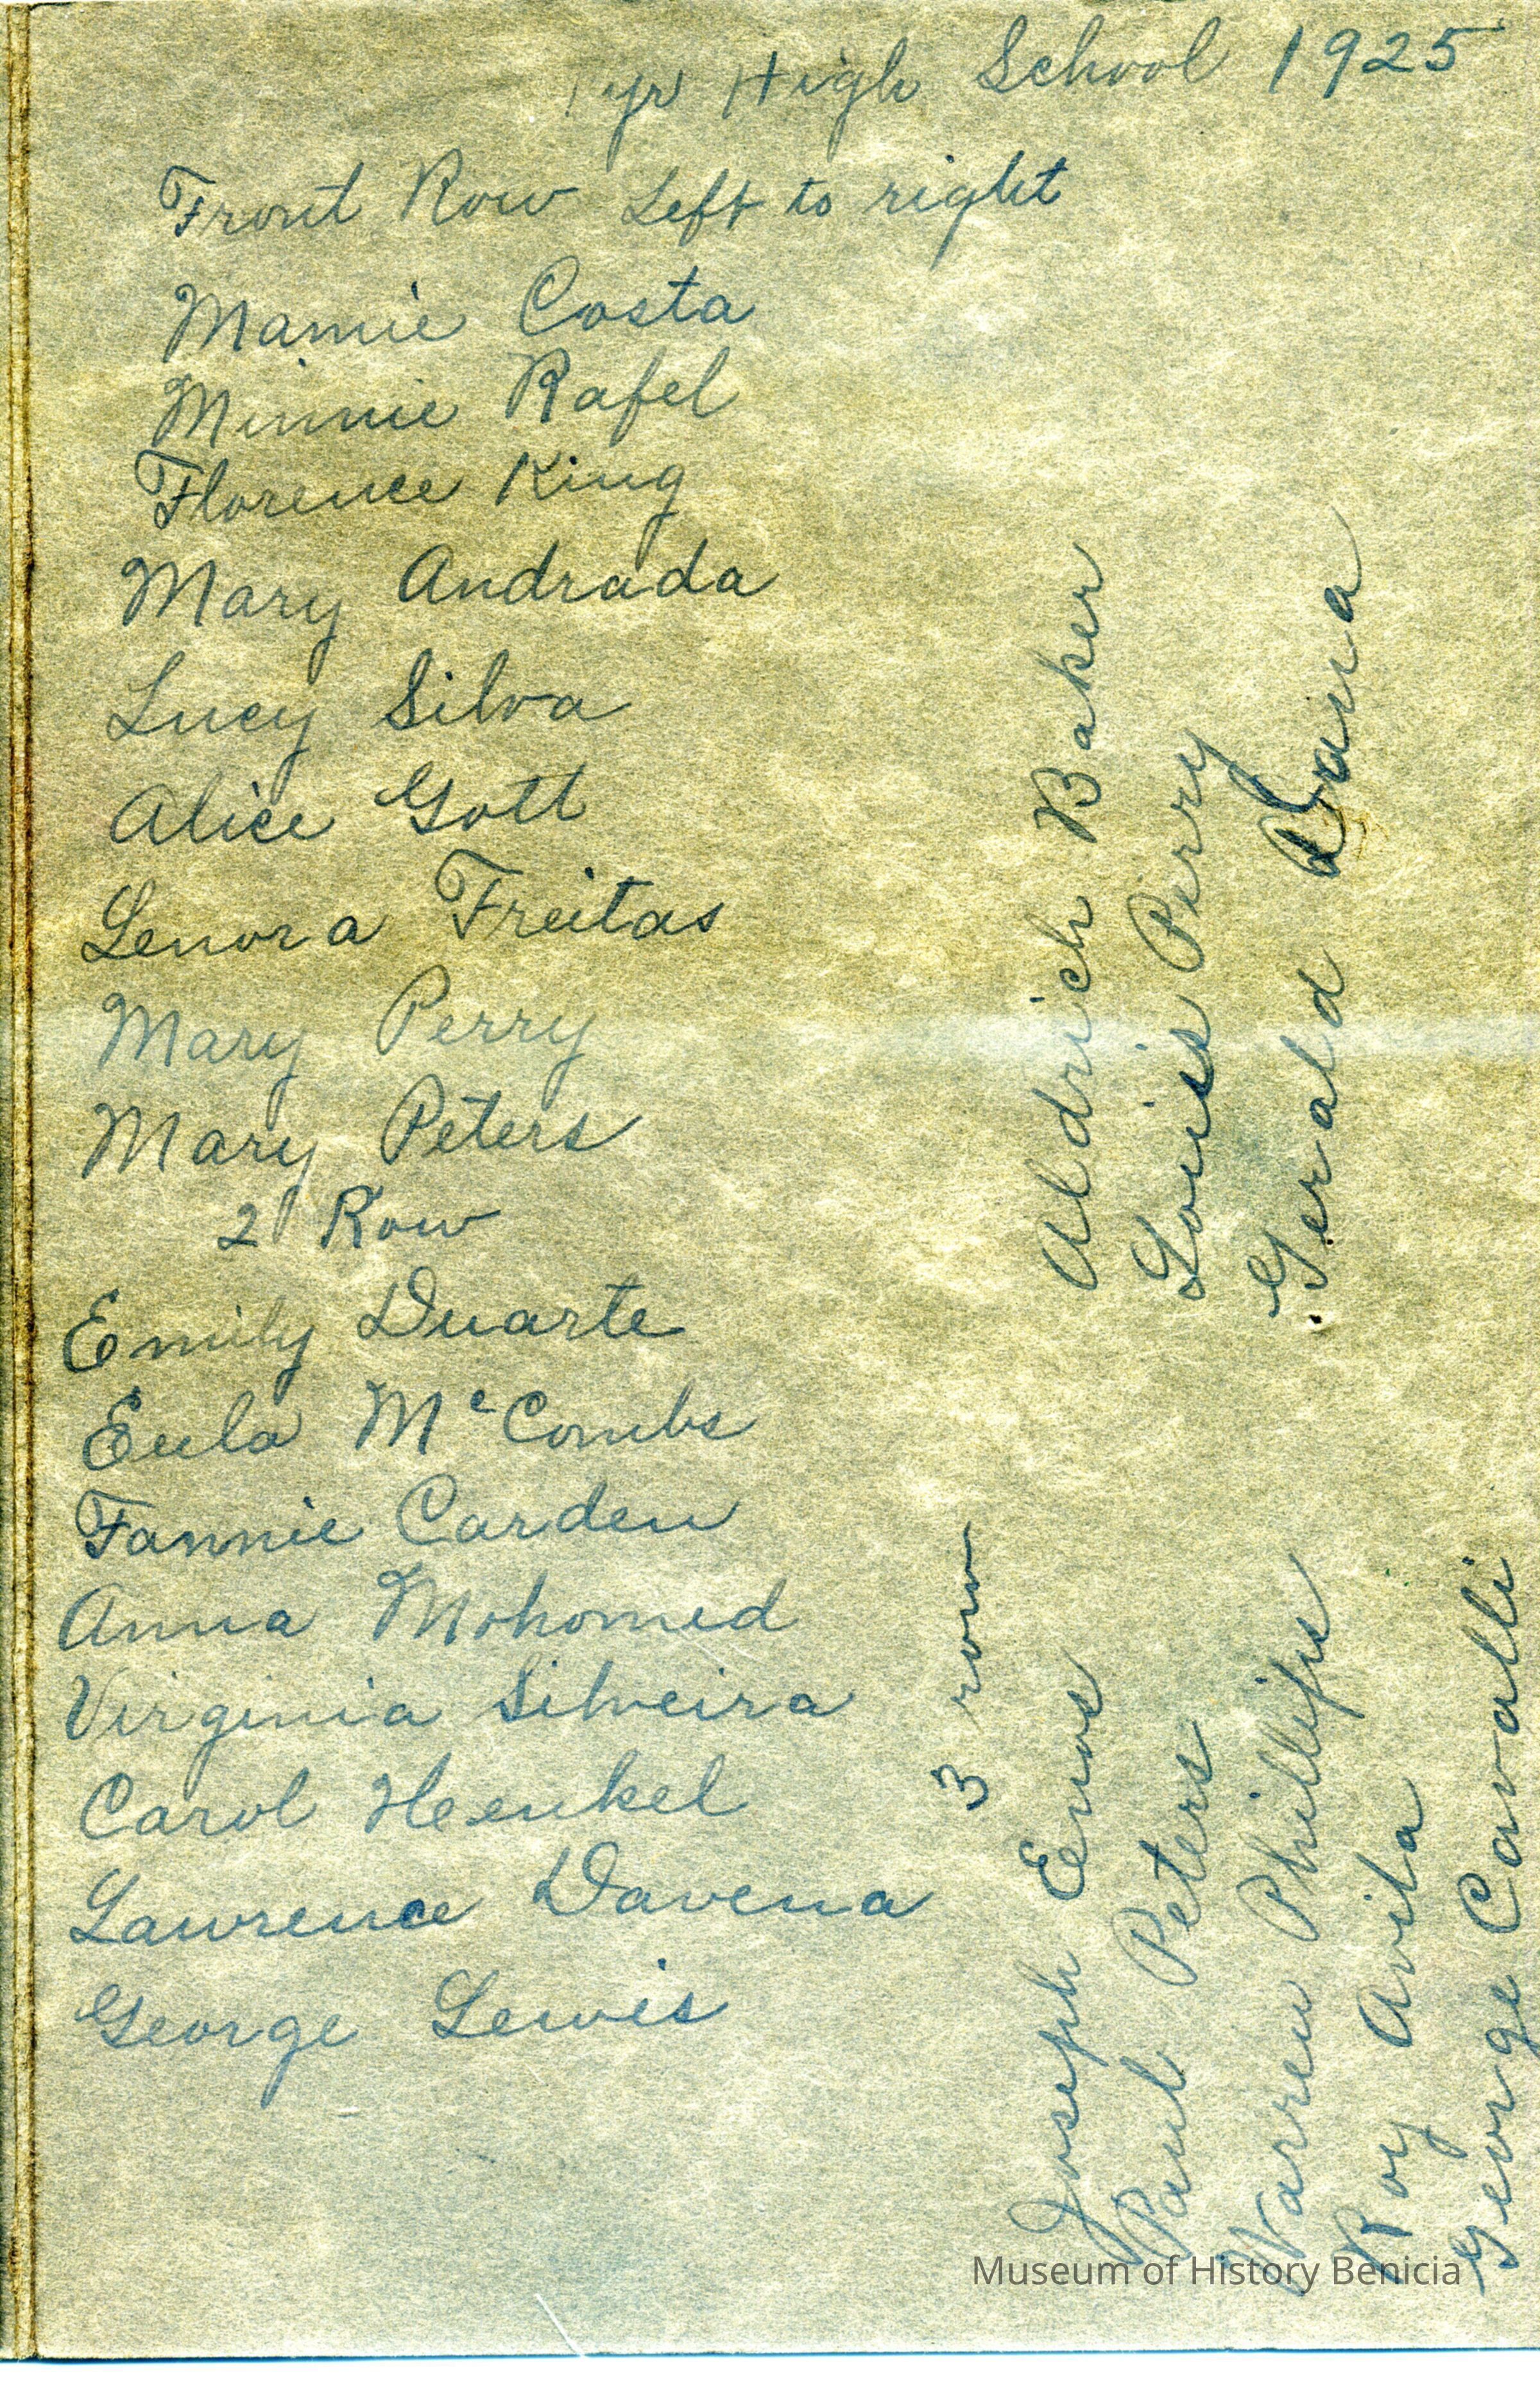 1 yr High School 1925
Front Row Left to right
Mamie Costa
Minnie Rafel
Florence King
Mary Andrada
Lucy Silva
Alice Gott
Lenora Freitas
Mary Perry
Mary Peters
2 Row
Emily Duarte
Eula McCombs
Fannie Carden
Anna Mohomed
Virginia Silveira
Carol Heenkel
Lawrence Davena
George Lewis
3 row
Joseph Enos
Paul Peters
Warren Phillips
Roy Avila
George Cavalli
Aldrich Baker
Louis Perry
Gerald
Museum of History Benicia